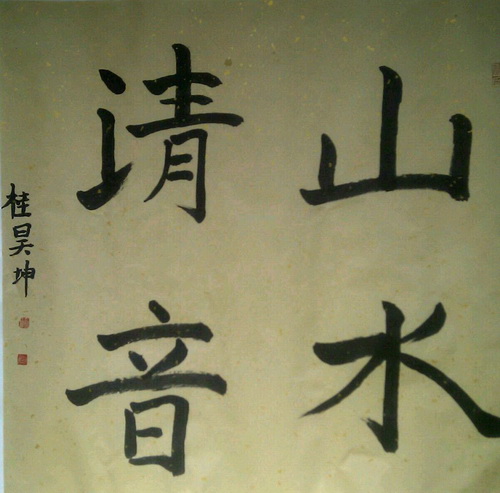 山水
清音
桂昊坤